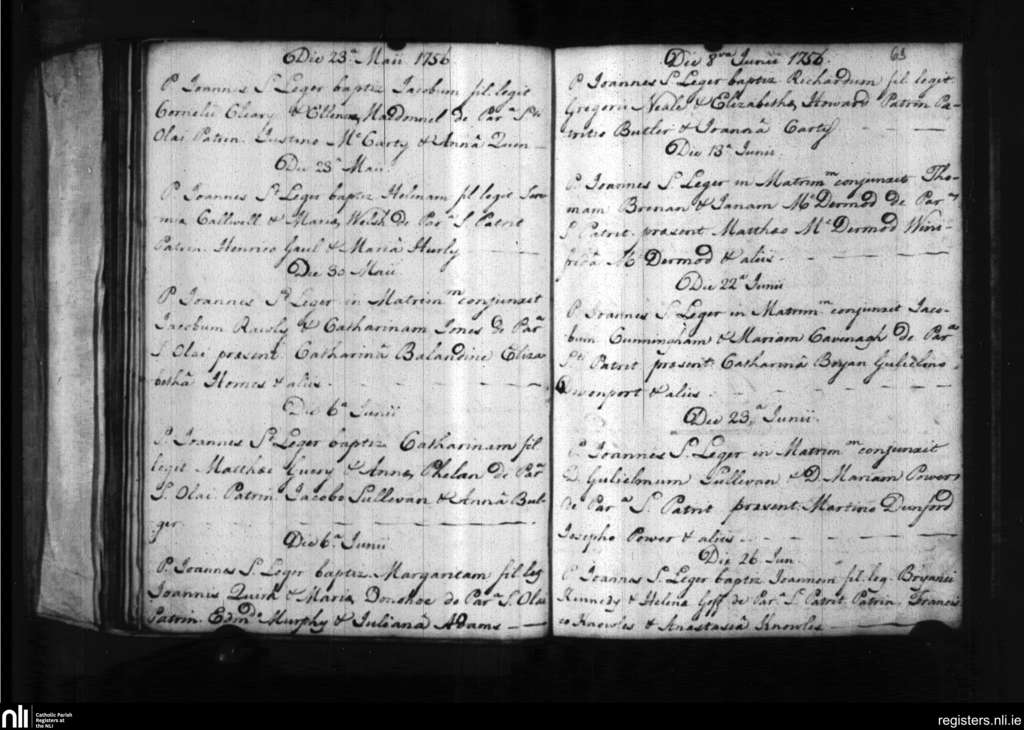 Die 23.a Maii 1756
P. Joannes S. Leger baptiz. Jacobum fil. legit
Cornelii Cleary & Ellenæ MacDonnel de Par.a S.ti
Olai Patrin. Justino Mc.Carty & Annâ Quin
Die 23.a Maii
P. Joannes S.t Leger baptiz. Helenam fil. legit Jere
mia Callwell & Maria Welsh de Par.a S. Patrit
Patrin. Henrico Gaul & Mariâ Hurly
Die 30 Maii
P. Joannes S.t Leger in Matrim.m conjunxit
Jacobum Rawly & Catharinam Jones de Par.a
S. Olai present. Catharinâ Balandine Eliza
bethâ Homes & aliis.
Die 6.a Junii
P. Joannes S.t Leger baptiz. Catharinam fil
legit Matthæ Guery & Annæ Phelan de Par.a
S. Olai. Patrin. Jacobo Sullevan & Annâ Bul-
ger
Die 6.a Junii
P. Joannes S. Leger baptiz. Margaritam fil. leg
Joannis Quirk & Maria Donohoe de Par.a S. Olai
Patrin. Edm.d Murphy & Julianâ Adams
63
Die 8.va Junii 1756.
P. Joannes S. Leger baptiz. Richardum fil. legit
Gregorii Neale & Elizabethæ Howard Patrin Pa-
tritio Butler & Joannâ Carty
Die 13.a Junii
P. Joannes S. Leger in Matrim.m conjunxit Tho-
mam Brenan & Janam Mc.Dermod de Par.a
S. Patrit. present Matthæo Mc.Dermod Wini-
fridâ Mc Dermod & aliis.
Die 22.a Junii
P. Joannes S. Leger in Matrim.m conjunxit Jaco-
bum Cunningham & Mariam Cavenagh de Par.a
S.ti Patrit present. Catharinâ Boyan Gulielmo
Devenport & aliis.
Die 23.a Junii.
P. Joannes S. Leger in Matrim.m conjunxit
D. Gulielmum Sullevan & D. Mariam Power
de Par.a S. Patrit present. Martino Dunford
Josepho Power & aliis.
Die 26 Jun.
P. Joannes S. Leger baptiz. Joannem fil. leg. Bryanii
Kennedy & Helena Goff de Par.a S. Patrit. Patrin. Francis
co Knowles & Anastasiâ Knowles
nli
Catholic Parish
Registers at
the NLI
registers.nli.ie